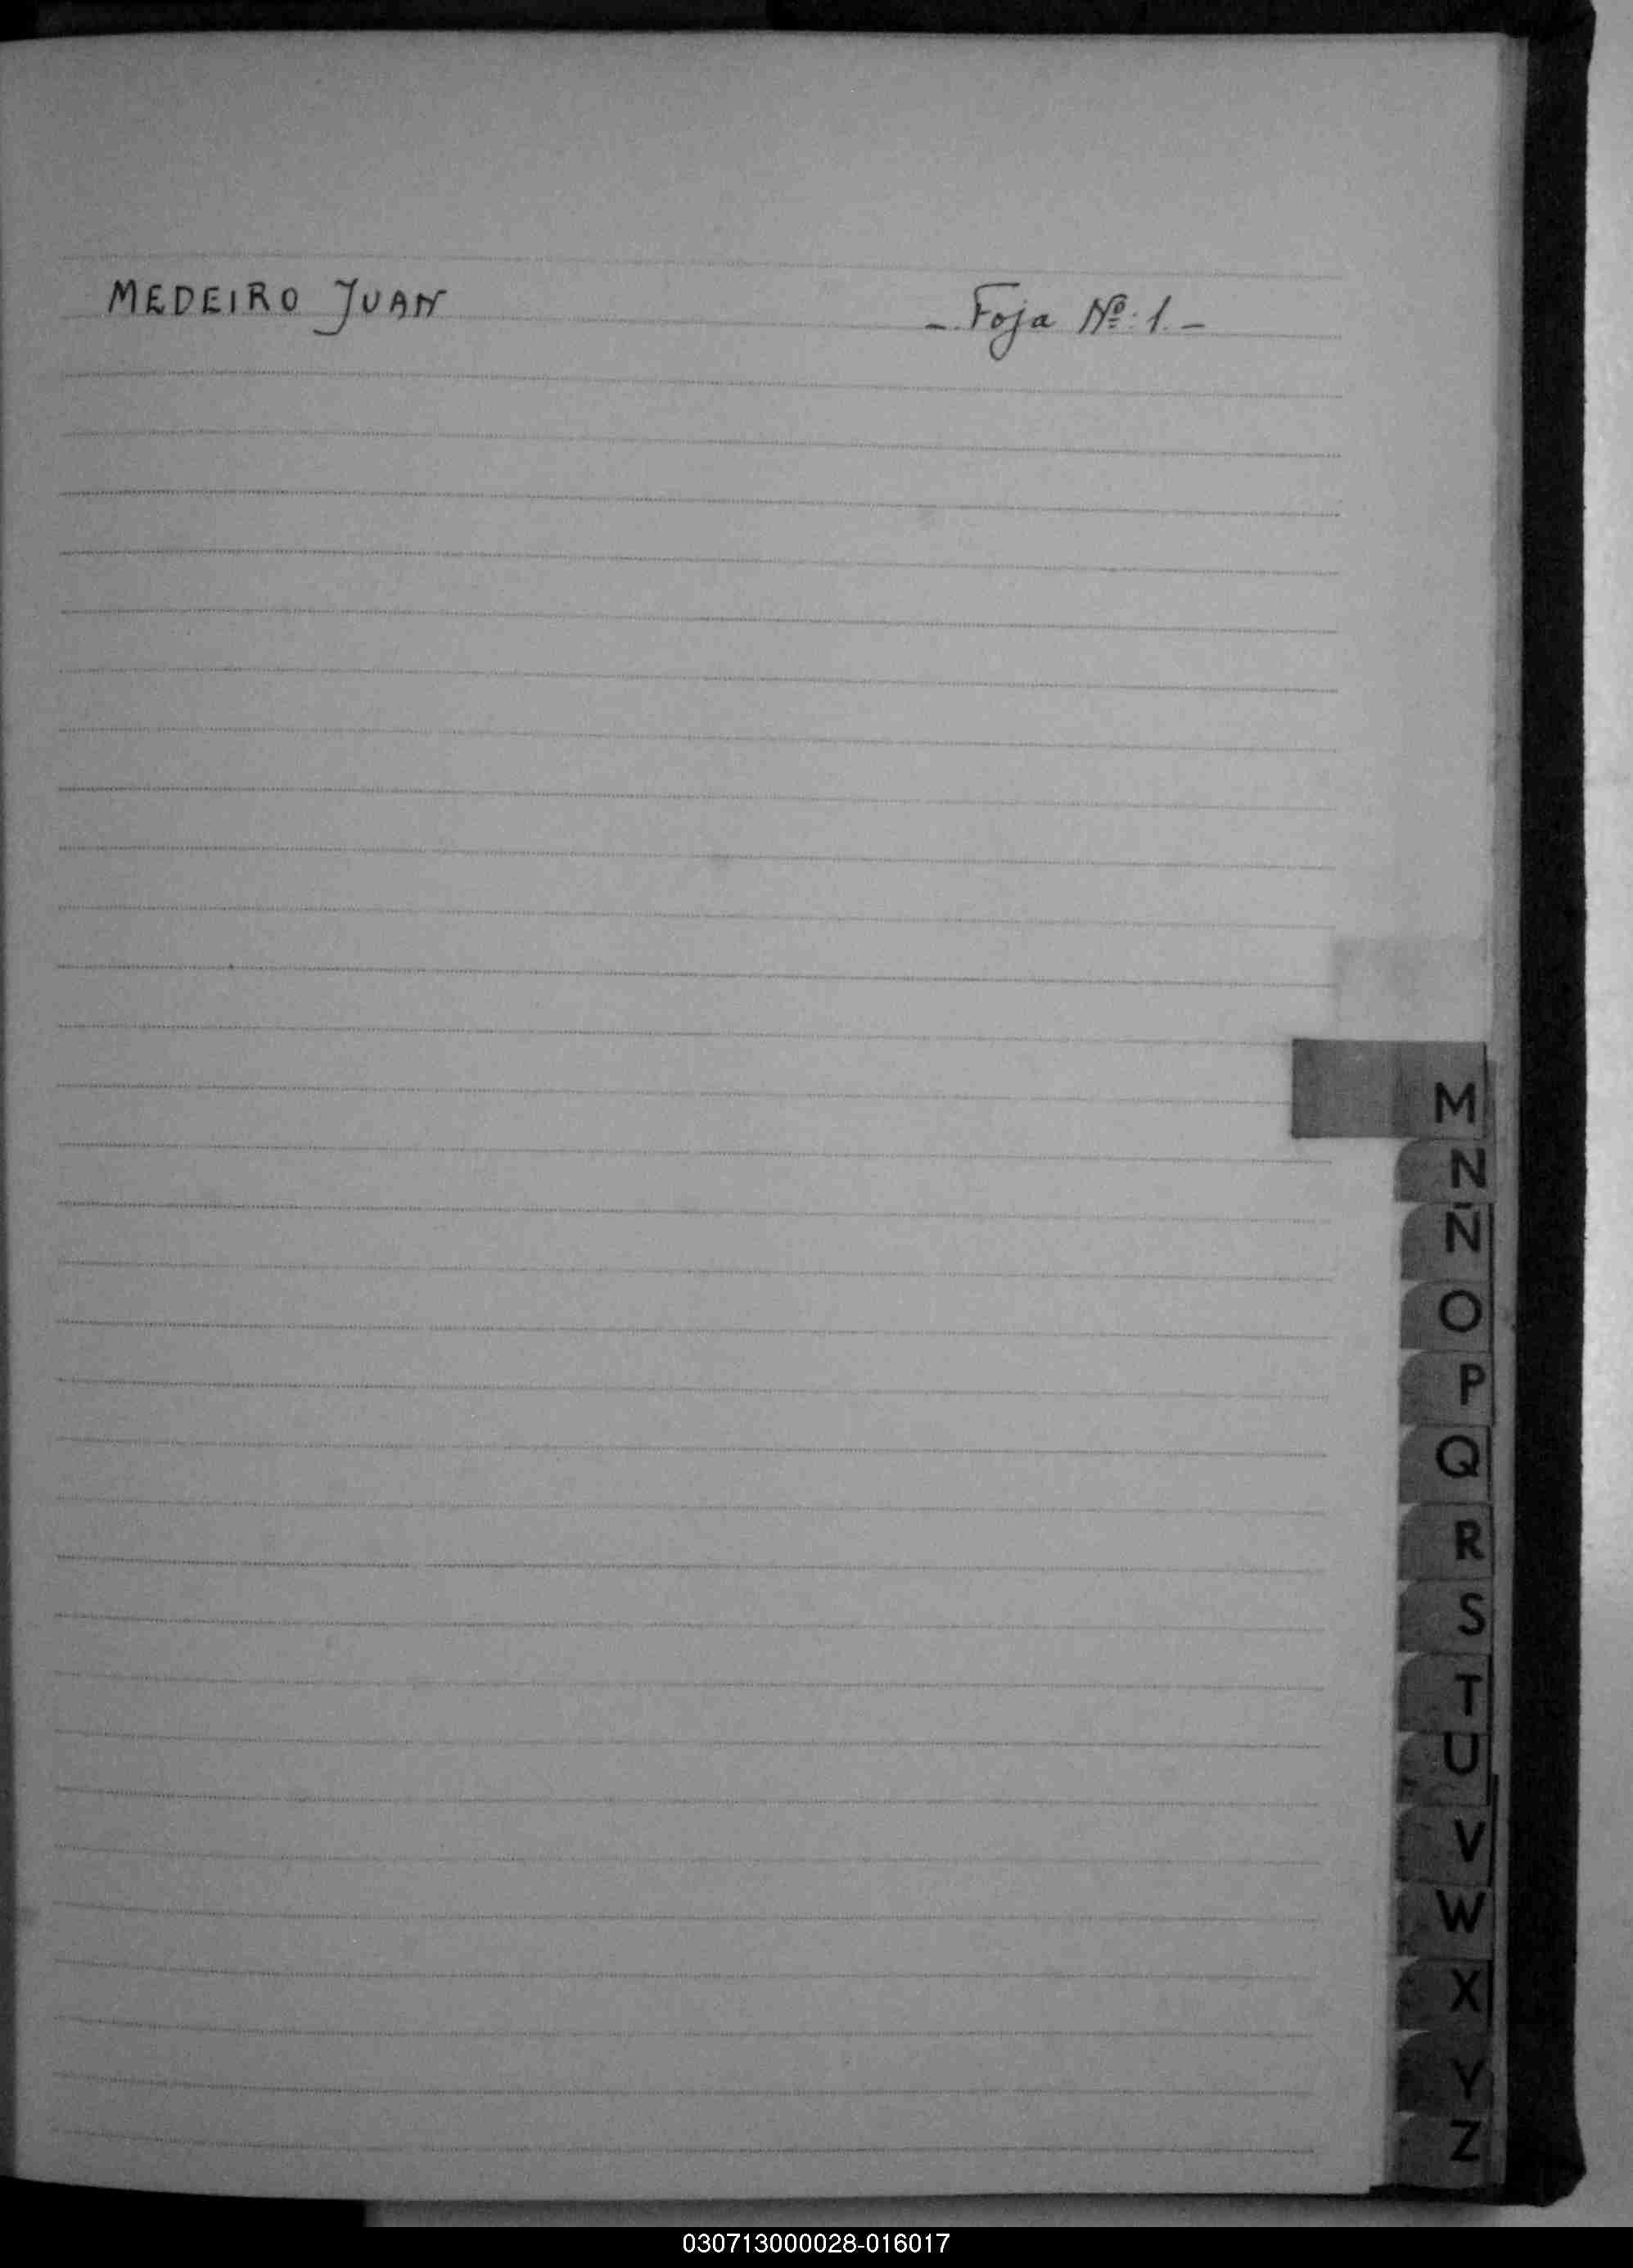 MEDEIRO JUAN - Foja Nº: 1. -
M
N
Ñ
O
P
Q
R
S
T
U
V
W
X
Y
Z
030713000028-016017